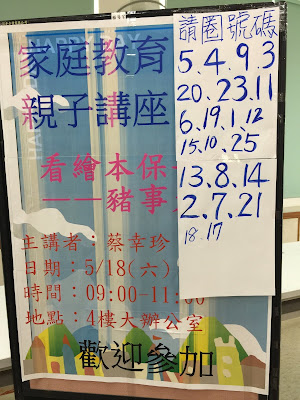 家庭教育
親子講座
看繪本保
——豬事
主講者：蔡幸珍
日期：5/18(六)
時間：09:00-11:00
地點：4樓大辦公室
歡迎參加
請圈號碼
5.4.9.3
20.23.11
6.19.1.12
15.10.25
13.8.14
2.7.21
18.17